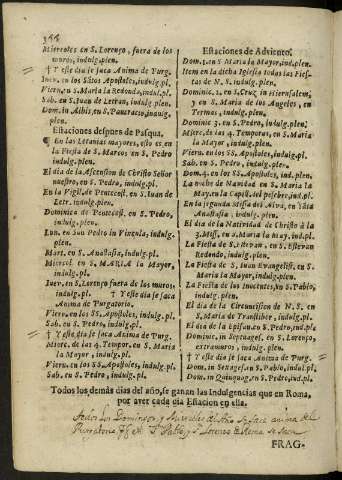 Miercoles en S. Lorenço, fuera de los
muros, indulg. plen.
† Y este dia se saca Anima de Purg.
Iuev. en los Sãtos Apostoles, indulg. pl.
Viern. en S. Maria la Redonda, indul. pl.
Sab. en S. Iuan de Letran, indulg. plen.
Dom. in Albis, en S. Pancracio, indulg.
plen.
Estaciones despues de Pasqua.
¶ En las Letanias mayores, esto es en
la Fiesta de S. Marcos en S. Pedro
indulg. plen.
El dia de la Ascension de Christo Señor
nuestro, en S. Pedro, indulg. pl.
En la Vigil. de Pentecost. en S. Iuan de
Letr. indulg. plen.
Dominica de Pentecost. en S. Pedro,
indulg. plen.
Lun. en San Pedro in Vincula, indulg.
plen.
Mart. en S. Anastasia, indulg. pl.
Miercol. en S. MARIA la Mayor,
indulg. pl.
Iuev. en S. Lorenço fuera de los muros,
indulg. pl. † Y este dia se saca
Anima de Purgatorio.
Viern. en los SS. Apostoles, indulg. pl.
Sab. en S. Pedro, indulg. pl.
† Y este dia se saca Anima de Purg.
Miorc. de las 4. Tempor. en S. Maria
la Mayor, indulg. pl.
Viern. en los SS. Apostoles, indulg. pl.
Sab. en S. Pedro, indulg. pl.
Estaciones de Adviento.
Dom. 1. en S. Maria la Mayor, ind. plen.
Item en la dicha Iglesia todas las Fies-
tas de N. S. indulg. plen.
Dominic. 2. en S. Cruz, in Hierusalem,
y en S. Maria de los Angeles, en
Termas, indulg. plen.
Dominic. 3. en S. Pedro, indulg. plen.
Mierc. de las 4. Temporas, en S. Maria
la Mayor, indulg. plen.
Viern. en los SS. Apostoles, indulg. plen.
Sab. en S. Pedro, indulg. plen.
Dom. 4. en los SS. Apostoles, indulg. pl.
La noche de Navidad en S. Maria la
Mayor, en la Capill. del pesebre, ind. pl.
En la segunda Missa del Alva, en santa
Anastasia, indulg. plen.
El dia de la Natividad de Christo à la
3. Miss. en S. Maria la May. ind. pl.
La Fiesta de S. Estevan, en S. Estevan
Redondo, indulg. plen.
La Fiesta de S. Iuan Evangelist. en S.
Maria la Mayor, indulg. plen.
La Fiesta de los Inocentes, en S. Pablo,
indulg. plen.
El dia de la Circuncision de N. S. en
S. Maria de Transtiber, indulg. pl.
El dia de la Epifan. en S. Pedro, ind. pl.
Dominic. in Septuages. en S. Lorenço,
extramuros, indulg. plen.
† Y este dia se saca Anima de Purg.
Domin. in Sexages. en S. Pablo, ind. pl.
Dom. in Quinquag. en S. Pedro, ind. pl.
Todos los demàs dias del año, se ganan las Indulgencias que en Roma,
por aver cada dia Estacion en ella.
todos los Domingos y Miercoles del Año se saca anima del
Purgatorio
FRAG-